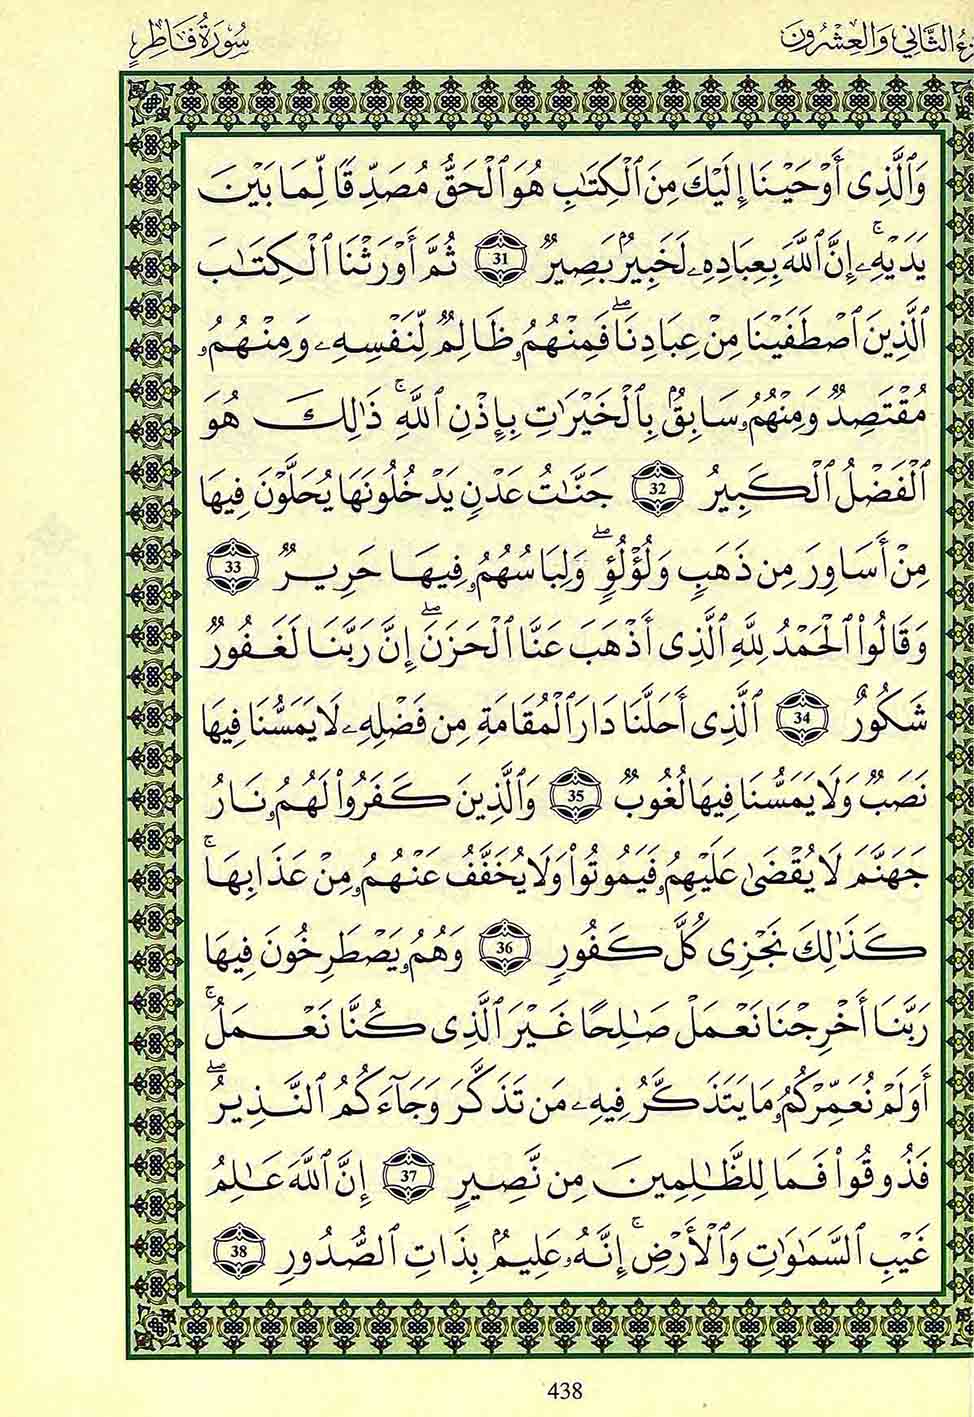 ـزء الثَّاني وَالعِشْرُونَ
سُورَةُ فَاطِرٍ
وَٱلَّذِى أَوْحَيْنَا إِلَيْكَ مِنَ ٱلْكِتَٰبِ هُوَ ٱلْحَقُّ مُصَدِّقًا لِّمَا بَيْنَ
يَدَيْهِۦۚ إِنَّ ٱللَّهَ بِعِبَادِهِۦ لَخَبِيرُۢ بَصِيرٌ 31 ثُمَّ أَوْرَثْنَا ٱلْكِتَٰبَ
ٱلَّذِينَ ٱصْطَفَيْنَا مِنْ عِبَادِنَاۖ فَمِنْهُمُۥ ظَالِمٌ لِّنَفْسِهِۦ وَمِنْهُمُۥ
مُقْتَصِدٌ وَمِنْهُمُۥ سَابِقُۢ بِٱلْخَيْرَٰتِ بِإِذْنِ ٱللَّهِۚ ذَٰلِكَ هُوَ
ٱلْفَضْلُ ٱلْكَبِيرُ 32 جَنَّٰتُ عَدْنٍ يَدْخُلُونَهَا يُحَلَّوْنَ فِيهَا
مِنْ أَسَاوِرَ مِن ذَهَبٍ وَلُؤْلُؤٍۖ وَلِبَاسُهُمُۥ فِيهَا حَرِيرٌ 33
وَقَالُوا۟ ٱلْحَمْدُ لِلَّهِ ٱلَّذِى أَذْهَبَ عَنَّا ٱلْحَزَنَۖ إِنَّ رَبَّنَا لَغَفُورٌ
شَكُورٌ 34 ٱلَّذِى أَحَلَّنَا دَارَ ٱلْمُقَامَةِ مِن فَضْلِهِۦ لَا يَمَسُّنَا فِيهَا
نَصَبٌ وَلَا يَمَسُّنَا فِيهَا لُغُوبٌ 35 وَٱلَّذِينَ كَفَرُوا۟ لَهُمُۥ نَارُ
جَهَنَّمَ لَا يُقْضَىٰ عَلَيْهِمُۥ فَيَمُوتُوا۟ وَلَا يُخَفَّفُ عَنْهُمُۥ مِنْ عَذَابِهَاۚ
كَذَٰلِكَ نَجْزِى كُلَّ كَفُورٍ 36 وَهُمُۥ يَصْطَرِخُونَ فِيهَا
رَبَّنَا أَخْرِجْنَا نَعْمَلْ صَٰلِحًا غَيْرَ ٱلَّذِى كُنَّا نَعْمَلُۚ
أَوَلَمْ نُعَمِّرْكُمُۥ مَا يَتَذَكَّرُ فِيهِۦ مَن تَذَكَّرَ وَجَآءَكُمُ ٱلنَّذِيرُۖ
فَذُوقُوا۟ فَمَا لِلظَّٰلِمِينَ مِن نَّصِيرٍ 37 إِنَّ ٱللَّهَ عَٰلِمُ
غَيْبِ ٱلسَّمَٰوَٰتِ وَٱلْأَرْضِۚ إِنَّهُۥ عَلِيمُۢ بِذَاتِ ٱلصُّدُورِ 38
438